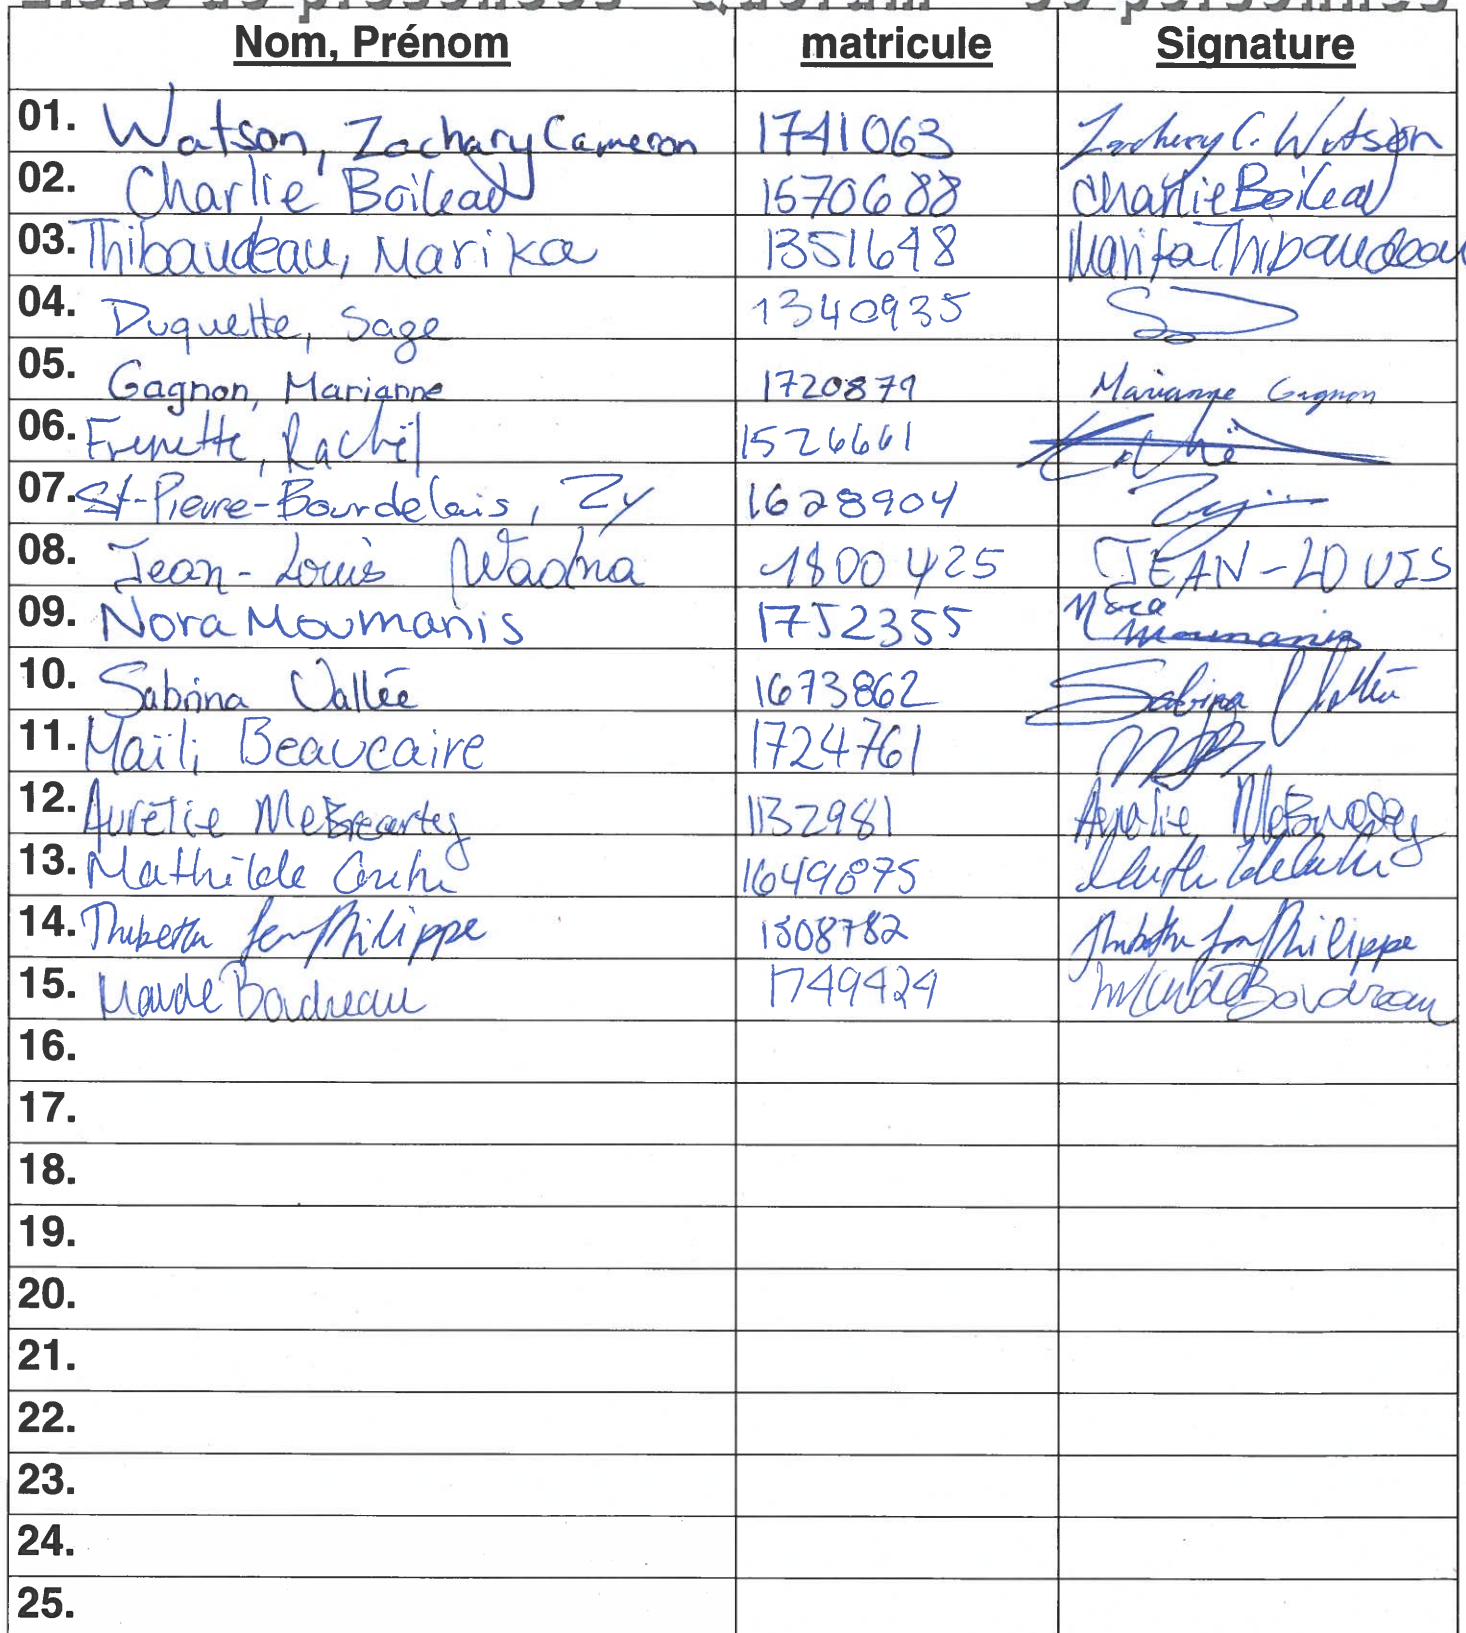 Nom, Prénom matricule Signature
01. Watson, Zachary Cameron 1741063 Zachary C. Watson
02. Charlie Boileau 1570688 Charlie Boileau
03. Thibaudeau, Marika 1351648 Marika Thibaudeau
04. Duquette, Sage 1340935
05. Gagnon, Marianne 1720879 Marianne Gagnon
06. Frenette, Rachël 1526661
07. St-Pierre-Bourdelais, Zy 1628904
08. Jean-Louis Wadna 1800425 JEAN-LOUIS
09. Nora Moumanis 1752355 Nora Moumanis
10. Sabrina Vallée 1673862 Sabrina Vallée
11. Maïli Beaucaire 1724761
12. Aurélie 1132981 Aurélie
13. Mathilde 1649875
14. Philippe 1808782 Philippe
15. Maude Boudreau 1749429 Maude Boudreau
16.
17.
18.
19.
20.
21.
22.
23.
24.
25.